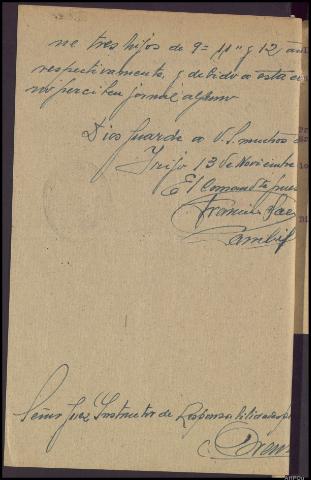 ne tres hijos de 9= 11" y 12 añ
respectivamente, y debido a esta
no perciben jornal alguno
Dios guarde a V.S. muchos a
13 de Noviembre
El Comandte
Francisco
Señor Juez Instructor de Responsabilidades
Orens